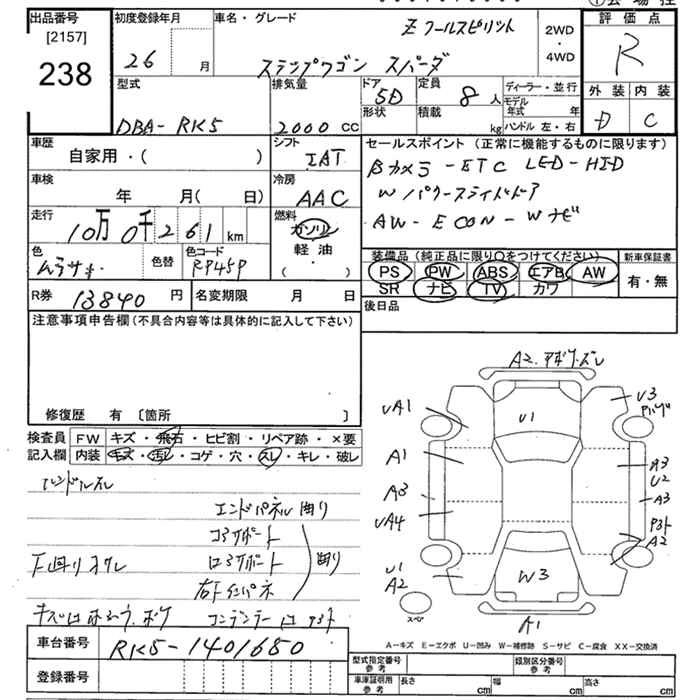 出品番号
[2157]
238
初度登録年月
26 月
車名・グレード
Z クールスピリット
ステップワゴン スパーダ
2WD
・
4WD
評価点
R
外装 内装
D C
型式
DBA-RK5
排気量
2000 cc
ドア
5D
形状
定員
8 人
積載
kg
ディーラー・並行
モデル
年式 年
ハンドル 左・右
車歴
自家用・( )
シフト
IAT
車検
年 月( 日)
冷房
AAC
走行
10万0千261km
燃料
ガソリン
軽油
・
( )
色
ムラサキ
色替
色コード
RP45P
R券
13840 円
名変期限 月 日
セールスポイント(正常に機能するものに限ります)
Bカメラ-ETC LED-HID
Wパワースライドドア
AW-ECON-Wナビ
装備品(純正品に限り〇をつけてください)
新車保証書
PS PW ABS エアB AW
SR ナビ TV カワ
有・無
後日品
注意事項申告欄(不具合内容等は具体的に記入して下さい)
修復歴 有 〔箇所 〕
検査員
記入欄
FW キズ・飛石・ヒビ割・リペア跡・×要
内装 キズ・汚レ・コゲ・穴・スレ・キレ・破レ
ハンドルスレ
エンドパネル曲り
コアサポート
下廻りスレ
ロアサポート
曲り
コンデンサー
車台番号
RK5-1401680
登録番号
A2
U1
UA1
U3
A1
A3
U2
A3
A3
UA4
A2
U1
A2
W3
A1
スペア
A-キズ E-エクボ U-凹み W-補修跡 S-サビ C-腐食 XX-交換済
型式指定番号
参考
類別区分番号
参考
車庫証明用
参考
長さ cm
幅 cm
高さ cm